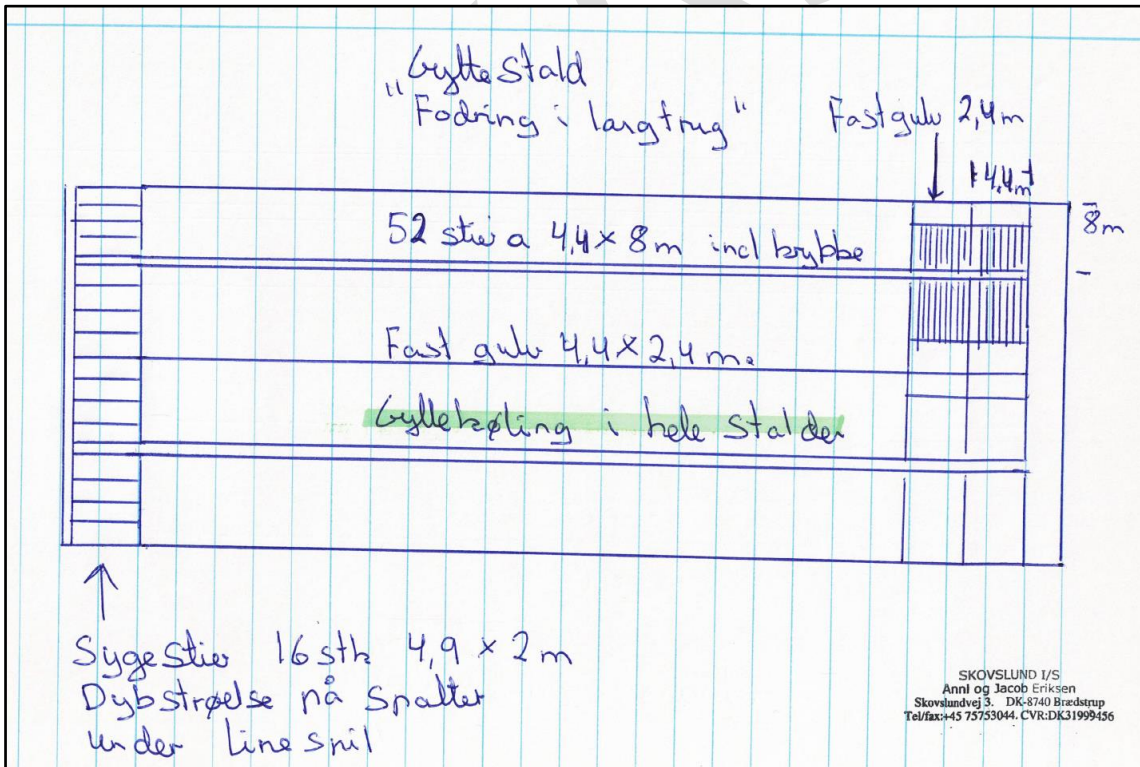 Gylte stald
"Fodring i langtrug"
Fast gulv 2,4m
4,4m
8m
52 stier a 4,4 x 8 m incl krybbe
Fast gulv 4,4 x 2,4 m.
Gyllekøling i hele stalden
Sygestier 16 stk 4,9 x 2 m
Dybstrøelse på spalter
under linespil
SKOVSLUND I/S
Anni og Jacob Eriksen
Skovslundvej 3. DK-8740 Brædstrup
Tel/fax:+45 75753044. CVR:DK31999456